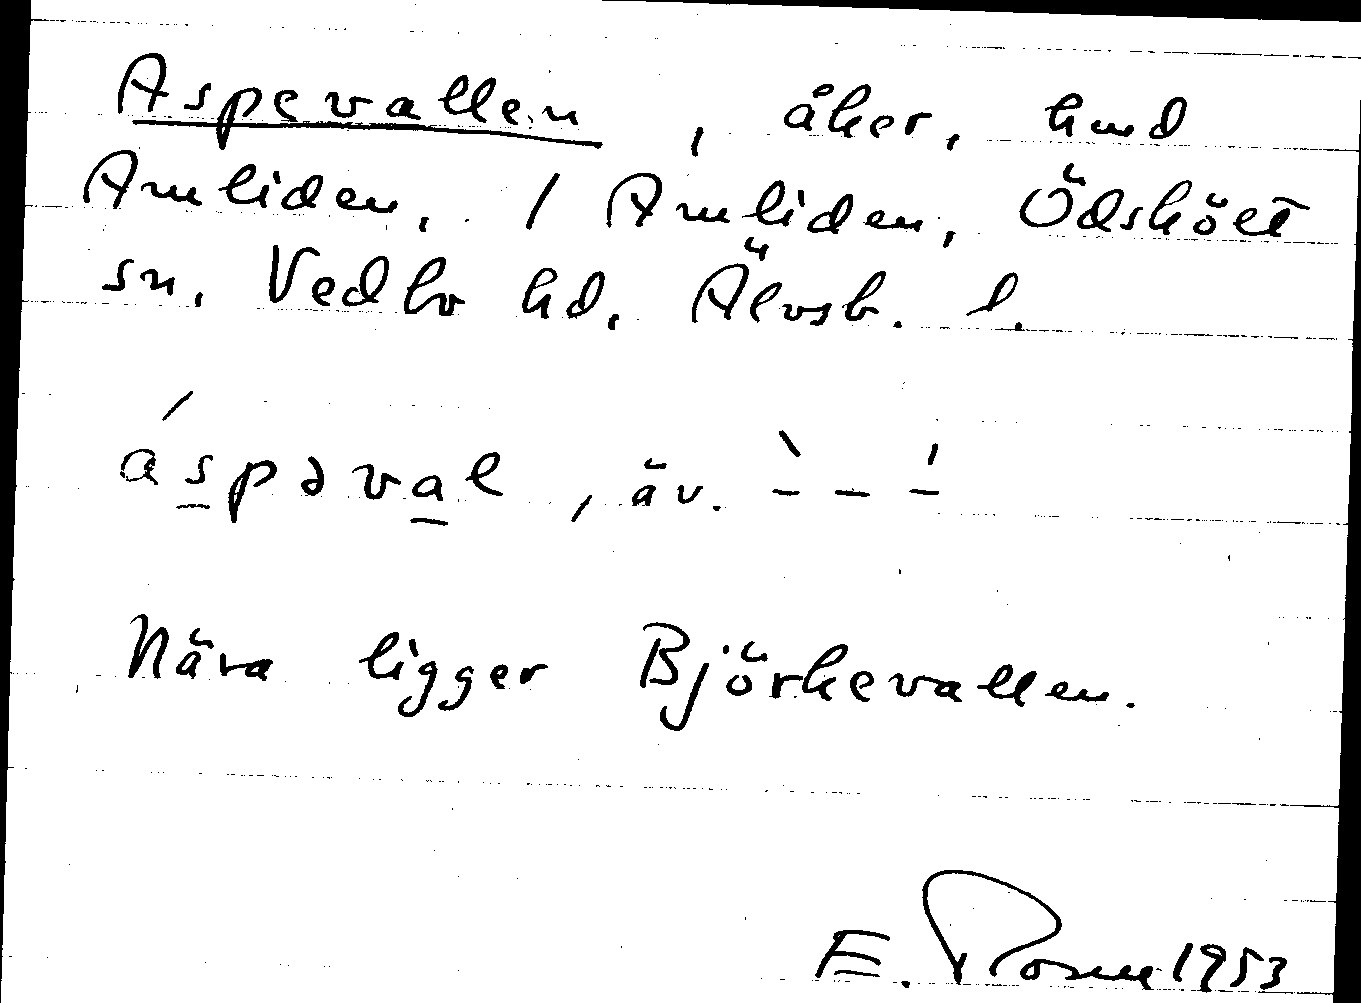 Aspevallen, åker, hmd
Amliden. / Amliden, Ödskölt
sn. Vedbo hd. Älvsb. l.
áspəval, äv. – – –
Nära ligger Björkevallen.
E. Rosell 1953